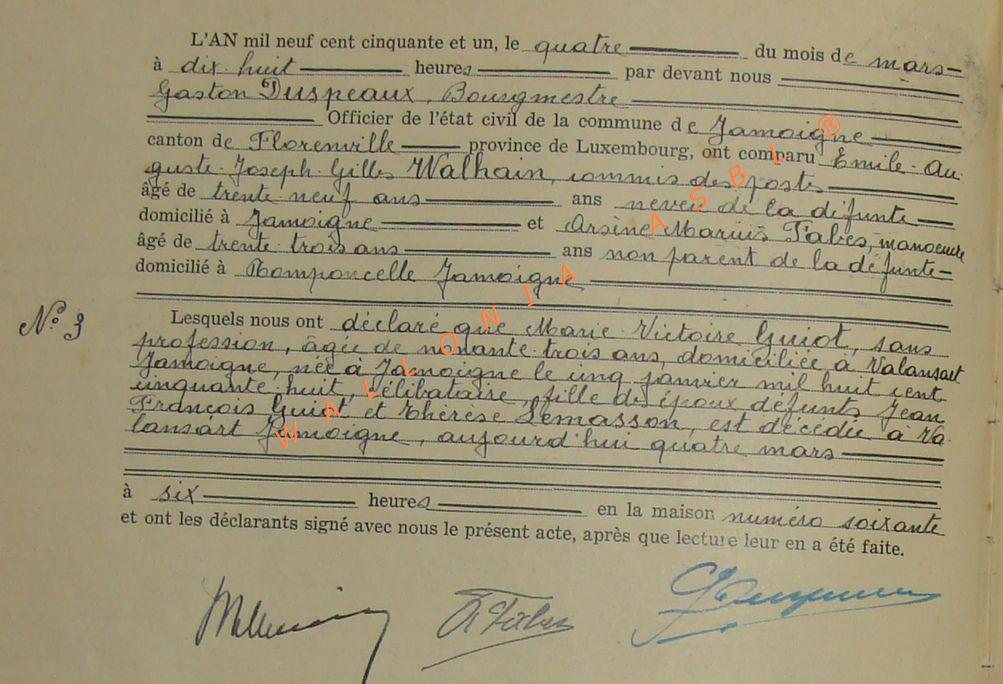 L'AN mil neuf cent cinquante et un, le quatre du mois de mars
à dix-huit heures par devant nous
Gaston Duspeaux, Bourgmestre
Officier de l'état civil de la commune de Jamoigne
canton de Florenville province de Luxembourg, ont comparu Emile-Au
guste-Joseph-Gilles Walhain, commis des postes
âgé de trente neuf ans ans neveu de la défunte
domicilié à Jamoigne et Arsène Marius Fabes, manoeuvre
âgé de trente-trois ans ans non parent de la défunte
domicilié à Romponcelle Jamoigne
N° 3
Lesquels nous ont déclaré que Marie-Victoire Guiot, sans
profession, âgée de nonante-trois ans, domiciliée à Valansart
Jamoigne, née à Jamoigne le cinq janvier mil huit cent
cinquante-huit, célibataire, fille des époux défunts Jean
François Guiot et Thérèse Lemasson, est décédée à Va
lansart Jamoigne, aujourd'hui quatre mars
à six heures en la maison numéro soixante
et ont les déclarants signé avec nous le présent acte, après que lecture leur en a été faite.
WALLONIA ASBL ®